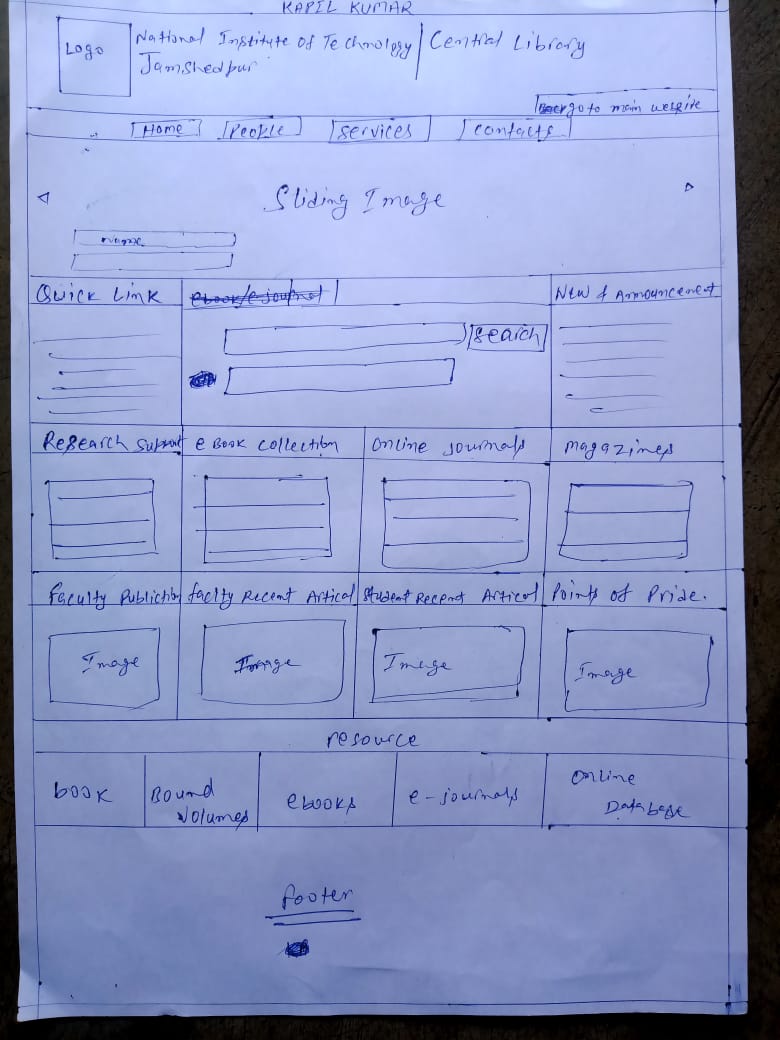 KAPIL KUMAR
Logo
National Institute Of Technology | Central Library
Jamshedpur
go to main website
Home People services contacts
Sliding Image
Name
Quick Link ebook/e journal New & Announcement
search
Research Support e Book collection Online Journals Magazines
Faculty Publiction faclty Recent Artical Student Recent Artical Points of Pride.
Image Image Image Image
resource
book Bound Volumes ebooks e-journals Online Database
footer